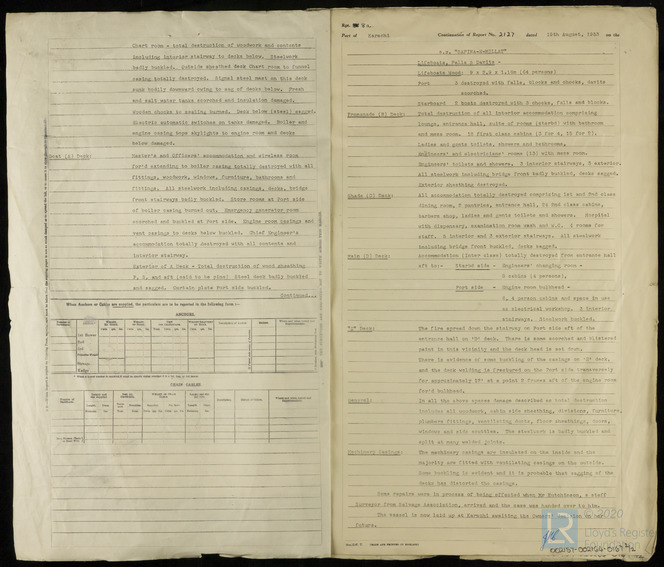 Chart room - total destruction of woodwork and contents
including interior stairway to decks below. Steelwork
badly buckled. Outside sheathed deck Chart room to funnel
casing totally destroyed. Signal steel mast on this deck
sunk badly downward owing to sag of decks below. Fresh
and salt water tanks scorched and insulation damaged.
Wooden chocks to seating burned. Deck below (steel) sagged.
Electric automatic switches on tanks damaged. Boiler and
engine casing tops skylights to engine room and decks
below damaged.
Boat (A) Deck:
Master's and Officers' accommodation and wireless room
for'd extending to boiler casing totally destroyed with all
fittings, woodwork, windows, furniture, bathrooms and
fittings. All steelwork including casings, decks, bridge
front stairways badly buckled. Store rooms at Port side
of boiler casing burned out. Emergency generator room
scorched and buckled at Port side. Engine room casings and
vent casings to decks below buckled. Chief Engineer's
accommodation totally destroyed with all contents and
interior stairway.
Exterior of A Deck - Total destruction of wood sheathing
P, S, and aft Steel deck badly buckled
and sagged. Certain plate Port side buckled.
Continued...
When Anchors or Cables are supplied, the particulars are to be reported in the following form :-
ANCHORS.
CHAIN CABLES
Rpt. 8a.
Port of Karachi Continuation of Report No. 3127 dated 18th August, 1953 on the
s.s. "SAFINA-E-MILLAT"
Lifeboats, Falls & Davits -
Lifeboats Wood:
Port 3 destroyed with falls, blocks and chocks, davits
scorched.
Starboard 3 boats destroyed with 3 chocks, falls and blocks.
Promenade (B) Deck:
Total destruction of all interior accommodation comprising
lounge, entrance hall, suite of rooms (starbd) with bathroom
and mess room.
Ladies and gents toilets, showers and bathrooms.
Engineers' and electricians' rooms with mess room.
Engineers' toilets and showers. 3 interior stairways, 2 exterior.
All steelwork including bridge front badly buckled, decks sagged.
Exterior sheathing destroyed.
Shade (C) Deck:
All accommodation totally destroyed comprising 1st and 2nd class
dining room, 2 pantries, entrance hall, 24 2nd class cabins,
barbers shop, ladies and gents toilets and showers. Hospital
with dispensary, examination room bath and W.C. 2 rooms for
staff. 2 interior and 2 exterior stairways. All steelwork
including bridge front buckled, decks sagged.
Main (D) Deck:
Accommodation (inter class) totally destroyed from entrance hall
aft to:- Starbd side - Engineers' changing room -
2 cabins (4 persons).
Port side - Engine room bulkhead -
6, 4 person cabins and space in use
as electrical workshop. 2 interior
stairways. Steelwork buckled.
"E" Deck:
The fire spread down the stairway on Port side aft of the
entrance hall on 'D' deck. There is some scorched and blistered
paint in this vicinity and the deck head is set down.
There is evidence of some buckling of the casings on 'D' deck,
and the deck welding is fractured on the Port side transversely
for approximately 15' at a point 2 frames aft of the engine room
for'd bulkhead.
General:
In all the above spaces damage described as total destruction
includes all woodwork, cabin side sheathing, divisions, furniture,
plumbers fittings, ventilating ducts, floor sheathings, doors,
windows and side scuttles. The steelwork is badly buckled and
split at many welded joints.
Machinery Casings:
The machinery casings are insulated on the inside and the
majority are fitted with ventilating casings on the outside.
Some buckling is evident and it is probable that sagging of the
decks has distorted the casings.
Some repairs were in process of being effected when Mr Hutchinson, a staff
Surveyor from Salvage Association, arrived and the case was handed over to him.
The vessel is now laid up at Karachi awaiting the Owners' decision on her
future.
© 2020
Lloyd's Register
Foundation
002157-002164-0167 1/2